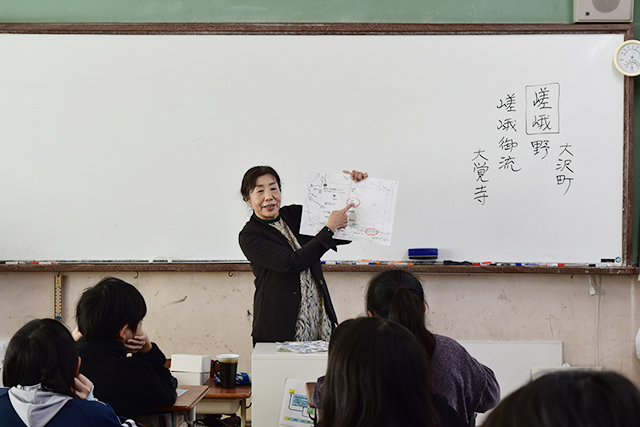 大沢町
嵯峨野
嵯峨御流
大覚寺